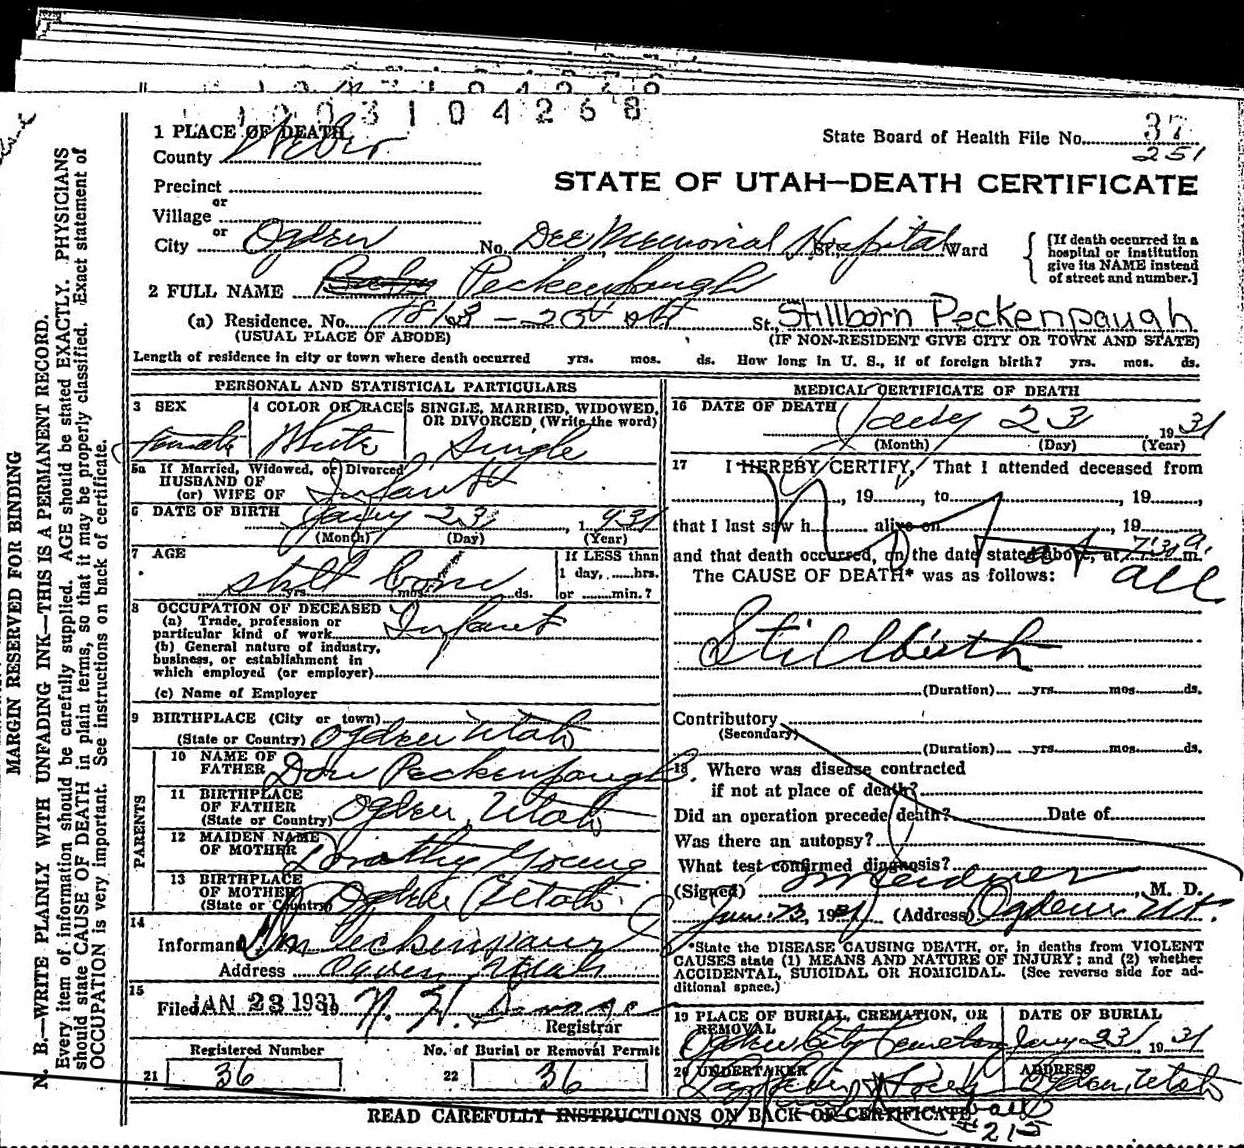 1 0 0 3 1 0 4 2 6 8
1 PLACE OF DEATH
County Weber
State Board of Health File No. 37
251
Precinct
or
Village
or
STATE OF UTAH—DEATH CERTIFICATE
City Ogden No. Dee Memorial Hospital St., Ward
[If death occurred in a hospital or institution give its NAME instead of street and number.]
2 FULL NAME Baby Peckenpaugh
(a) Residence. No. St. Stillborn Peckenpaugh
(USUAL PLACE OF ABODE) (IF NON-RESIDENT GIVE CITY OR TOWN AND STATE)
Length of residence in city or town where death occurred yrs. mos. ds. How long in U. S., if of foreign birth? yrs. mos. ds.
PERSONAL AND STATISTICAL PARTICULARS
3 SEX
female
4 COLOR OR RACE
White
5 SINGLE, MARRIED, WIDOWED, OR DIVORCED, (Write the word)
Single
5a If Married, Widowed, or Divorced
HUSBAND OF
(or) WIFE OF Infant
6 DATE OF BIRTH Jany 23, 1931
(Month) (Day) (Year)
7 AGE
still born
yrs. mos. ds.
If LESS than
1 day, ......hrs.
or ......min.?
8 OCCUPATION OF DECEASED
(a) Trade, profession or
particular kind of work Infant
(b) General nature of industry,
business, or establishment in
which employed (or employer)
(c) Name of Employer
9 BIRTHPLACE (City or town)
(State or Country) Ogden Utah
PARENTS
10 NAME OF
FATHER Don Peckenpaugh
11 BIRTHPLACE
OF FATHER
(State or Country) Ogden, Utah
12 MAIDEN NAME
OF MOTHER Dorothy Young
13 BIRTHPLACE
OF MOTHER
(State or Country) Ogden Utah
14
Informant Peckenpaugh
Address Ogden, Utah
15
Filed JAN 23 1931 19
Registrar
Registered Number No. of Burial or Removal Permit
21 36 22 36
MEDICAL CERTIFICATE OF DEATH
16 DATE OF DEATH Jany 23, 1931
(Month) (Day) (Year)
17 I HEREBY CERTIFY, That I attended deceased from
, 19 , to , 19 ,
that I last saw h alive on , 19
and that death occurred, on the date stated above, at m.
Not at all
The CAUSE OF DEATH* was as follows:
Stillbirth
(Duration) yrs. mos. ds.
Contributory
(Secondary)
(Duration) yrs. mos. ds.
18 Where was disease contracted
if not at place of death?
Did an operation precede death? Date of
Was there an autopsy?
What test confirmed diagnosis?
(Signed) , M. D.
Jan. 23, 1931 (Address) Ogden Ut.
*State the DISEASE CAUSING DEATH, or, in deaths from VIOLENT
CAUSES state (1) MEANS AND NATURE OF INJURY; and (2) whether
ACCIDENTAL, SUICIDAL OR HOMICIDAL. (See reverse side for ad-
ditional space.)
19 PLACE OF BURIAL, CREMATION, OR
REMOVAL
Ogden City Cemetery
DATE OF BURIAL
Jany 23, 1931
20 UNDERTAKER
ADDRESS
Ogden, Utah
READ CAREFULLY INSTRUCTIONS ON BACK OF CERTIFICATE
215
MARGIN RESERVED FOR BINDING
N. B.—WRITE PLAINLY WITH UNFADING INK—THIS IS A PERMANENT RECORD.
Every item of information should be carefully supplied. AGE should be stated EXACTLY. PHYSICIANS
should state CAUSE OF DEATH in plain terms, so that it may be properly classified. Exact statement of
OCCUPATION is very important. See instructions on back of certificate.